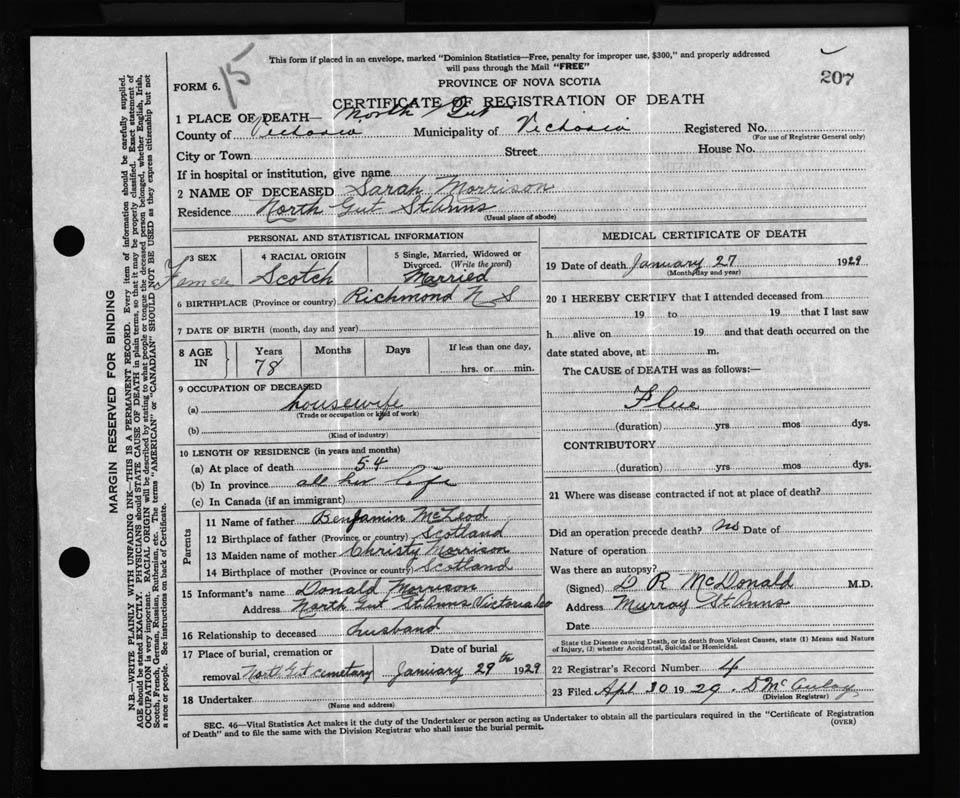 This form if placed in an envelope, marked "Dominion Statistics—Free, penalty for improper use, $300," and properly addressed
will pass through the Mail "FREE"
FORM 6.
15
PROVINCE OF NOVA SCOTIA
207
CERTIFICATE OF REGISTRATION OF DEATH
1 PLACE OF DEATH— North Gut
County of Victoria Municipality of Victoria Registered No.
(For use of Registrar General only)
City or Town Street House No.
If in hospital or institution, give name
2 NAME OF DECEASED Sarah Morrison
Residence North Gut St Anns
(Usual place of abode)
PERSONAL AND STATISTICAL INFORMATION
3 SEX 4 RACIAL ORIGIN 5 Single, Married, Widowed or
Divorced. (Write the word)
Female Scotch Married
6 BIRTHPLACE (Province or country) Richmond N S
7 DATE OF BIRTH (month, day and year)
8 AGE IN Years Months Days If less than one day,
78 hrs. or min.
9 OCCUPATION OF DECEASED
(a) housewife
(Trade or occupation or kind of work)
(b)
(Kind of industry)
10 LENGTH OF RESIDENCE (in years and months)
(a) At place of death 54
(b) In province all her life
(c) In Canada (if an immigrant)
Parents
11 Name of father Benjamin McLeod
12 Birthplace of father (Province or country) Scotland
13 Maiden name of mother Christy Morrison
14 Birthplace of mother (Province or country) Scotland
15 Informant's name Donald Morrison
Address North Gut St Anns Victoria Co
16 Relationship to deceased husband
17 Place of burial, cremation or Date of burial
removal North Gut cemetary January 29th 1929
18 Undertaker
(Name and address)
MEDICAL CERTIFICATE OF DEATH
19 Date of death January 27 1929
(Month, day and year)
20 I HEREBY CERTIFY that I attended deceased from
19 to 19 that I last saw
h alive on 19 and that death occurred on the
date stated above, at m.
The CAUSE of DEATH was as follows:—
Flue
(duration) yrs mos dys.
CONTRIBUTORY
(duration) yrs mos dys.
21 Where was disease contracted if not at place of death?
Did an operation precede death? no Date of
Nature of operation
Was there an autopsy?
(Signed) D R McDonald M.D.
Address Murray St Anns
Date
State the Disease causing Death, or in death from Violent Causes, state (1) Means and Nature
of Injury, (2) whether Accidental, Suicidal or Homicidal.
22 Registrar's Record Number 4
23 Filed Apl 30 1929. D McAulay
(Division Registrar)
SEC. 46—Vital Statistics Act makes it the duty of the Undertaker or person acting as Undertaker to obtain all the particulars required in the "Certificate of Registration
of Death" and to file the same with the Division Registrar who shall issue the burial permit.
(OVER)
MARGIN RESERVED FOR BINDING
N.B.—WRITE PLAINLY WITH UNFADING INK—THIS IS A PERMANENT RECORD. Every item of information should be carefully supplied.
AGE should be stated EXACTLY. PHYSICIANS should STATE CAUSE OF DEATH in plain terms, so that it may be properly classified. Exact statement of
OCCUPATION is very important. RACIAL ORIGIN will be described by stating to what people or tongue the deceased person belonged, whether English, Irish,
Scotch, French, German, Russian, Ruthenian, etc. The terms "AMERICAN" or "CANADIAN" SHOULD NOT BE USED as they express citizenship but not
a race or people. See instructions on back of Certificate.